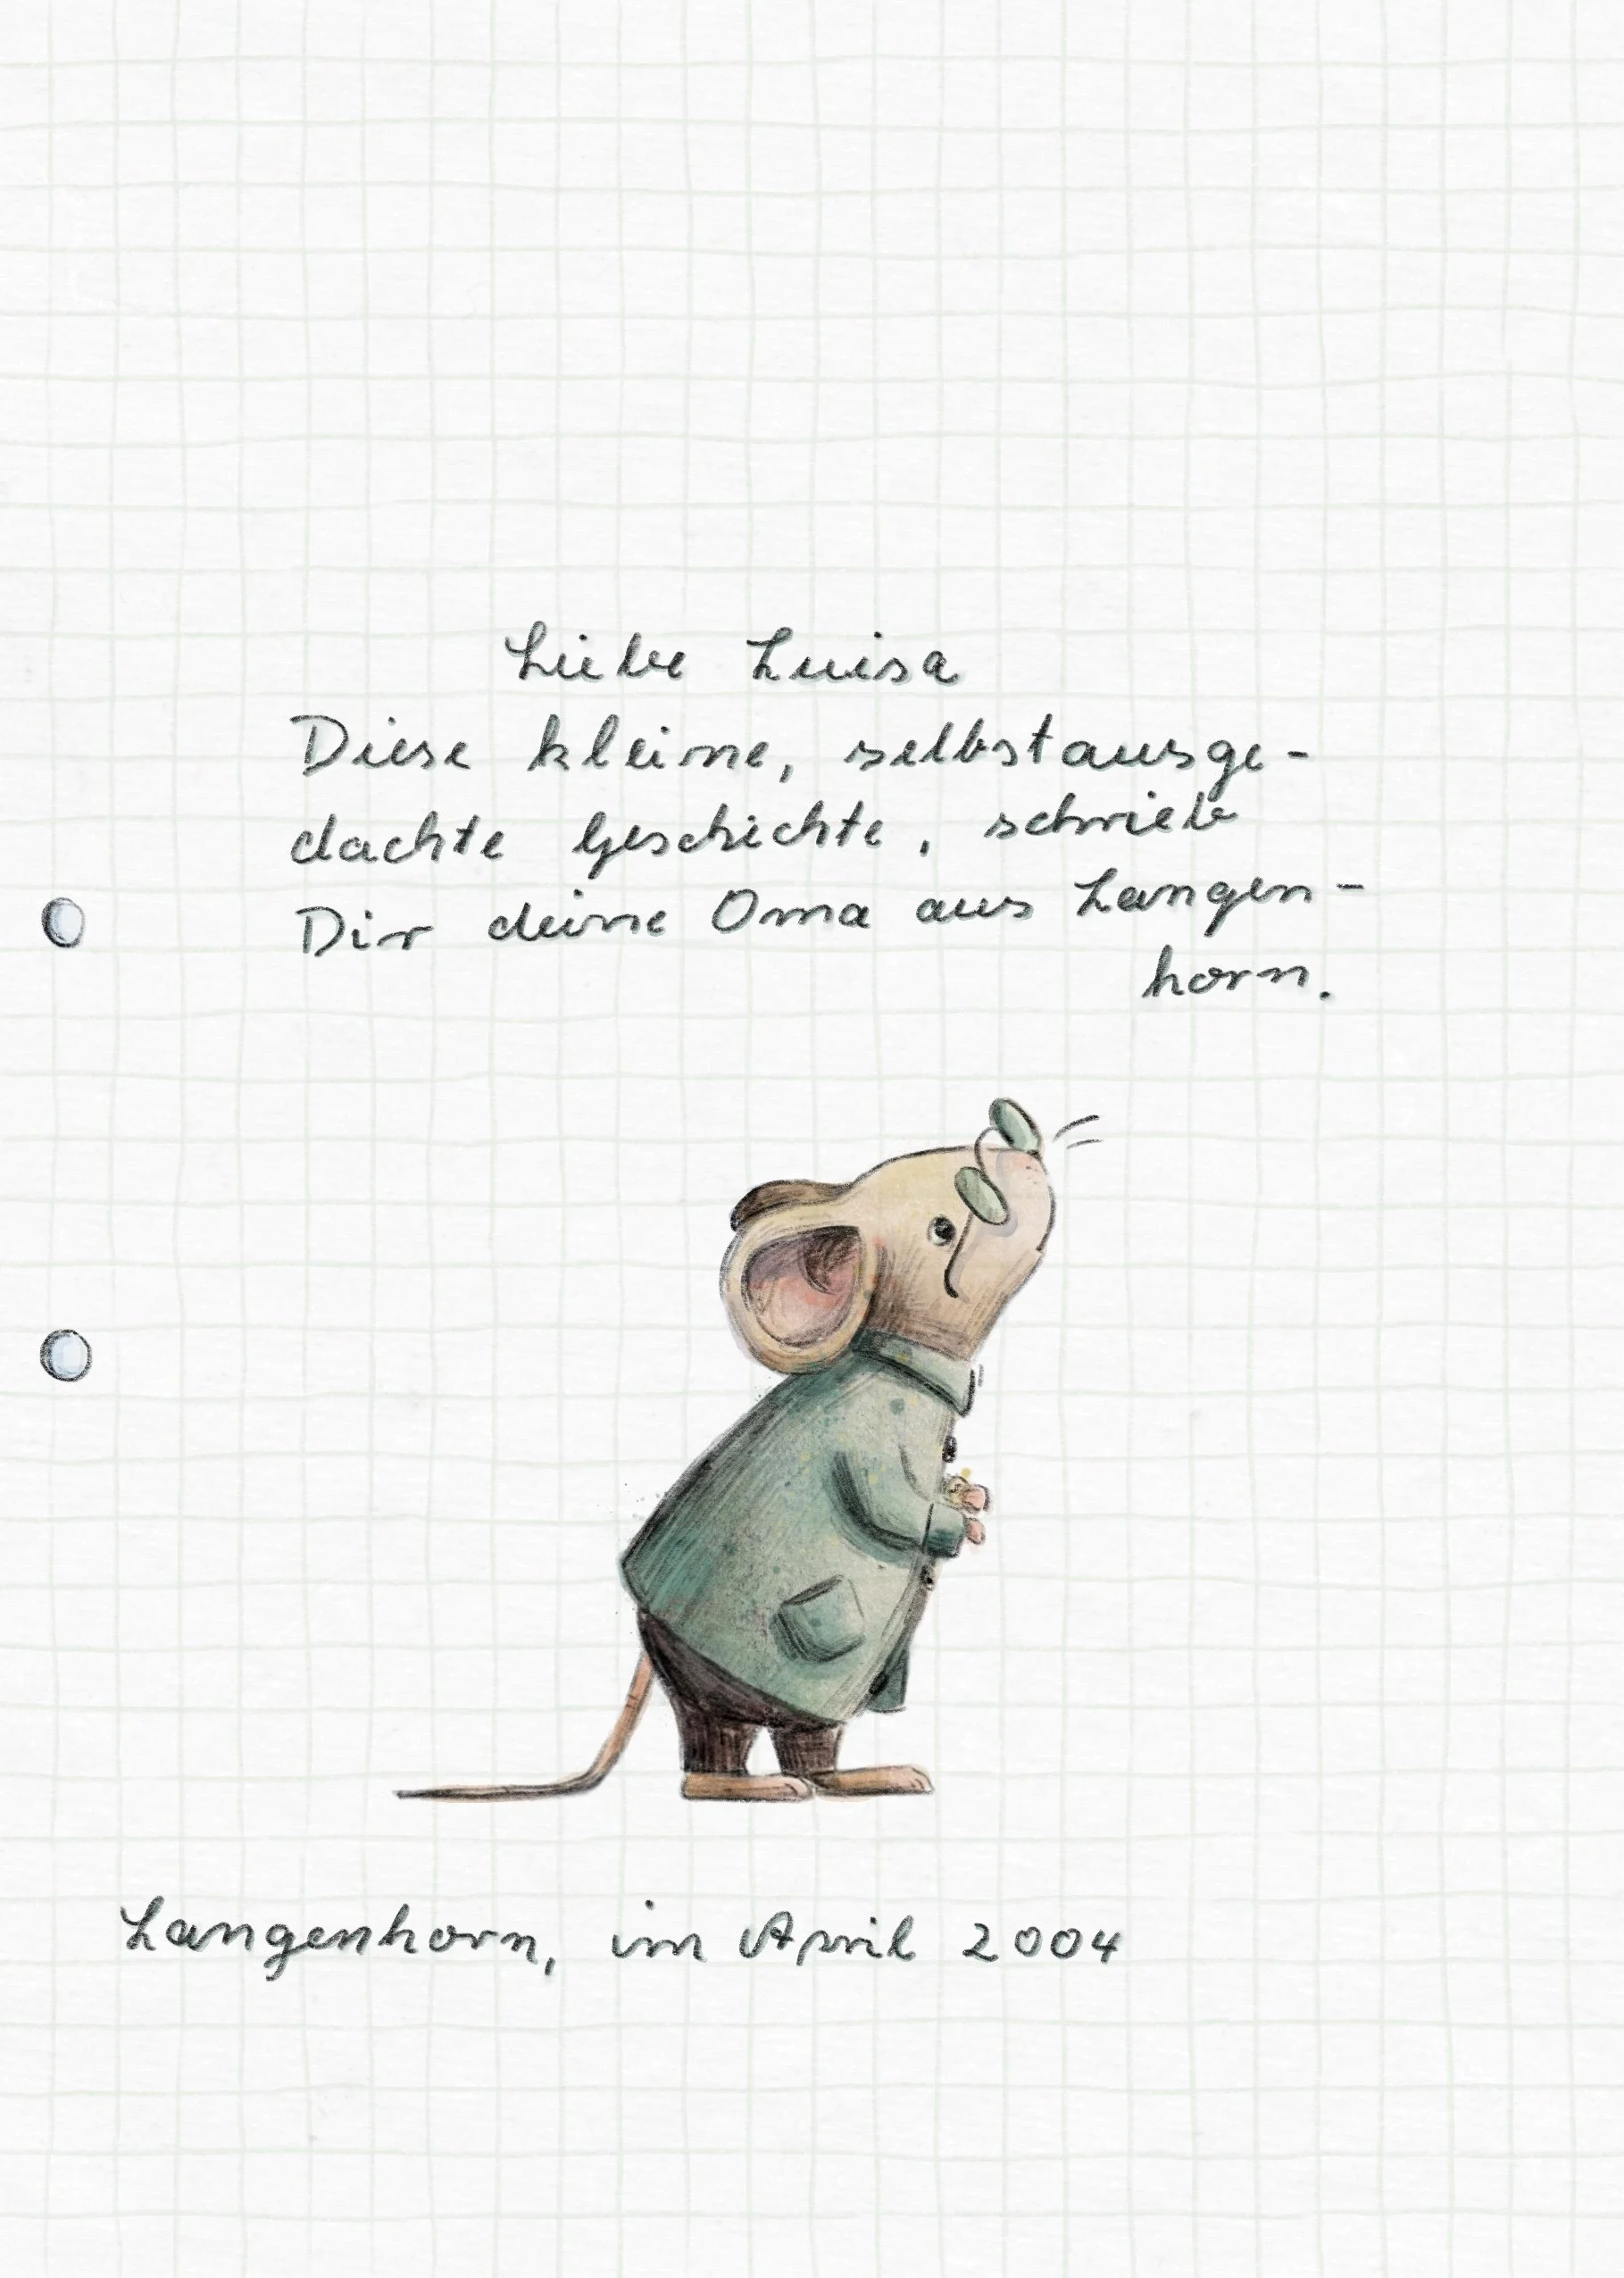 Liebe Luisa
Diese kleine, selbstausge-
dachte Geschichte, schrieb
Dir deine Oma aus Langen-
horn.
Langenhorn, im April 2004